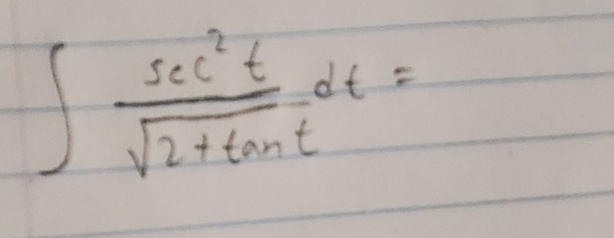 ∫ sec² t / √(2 + tan t) dt =